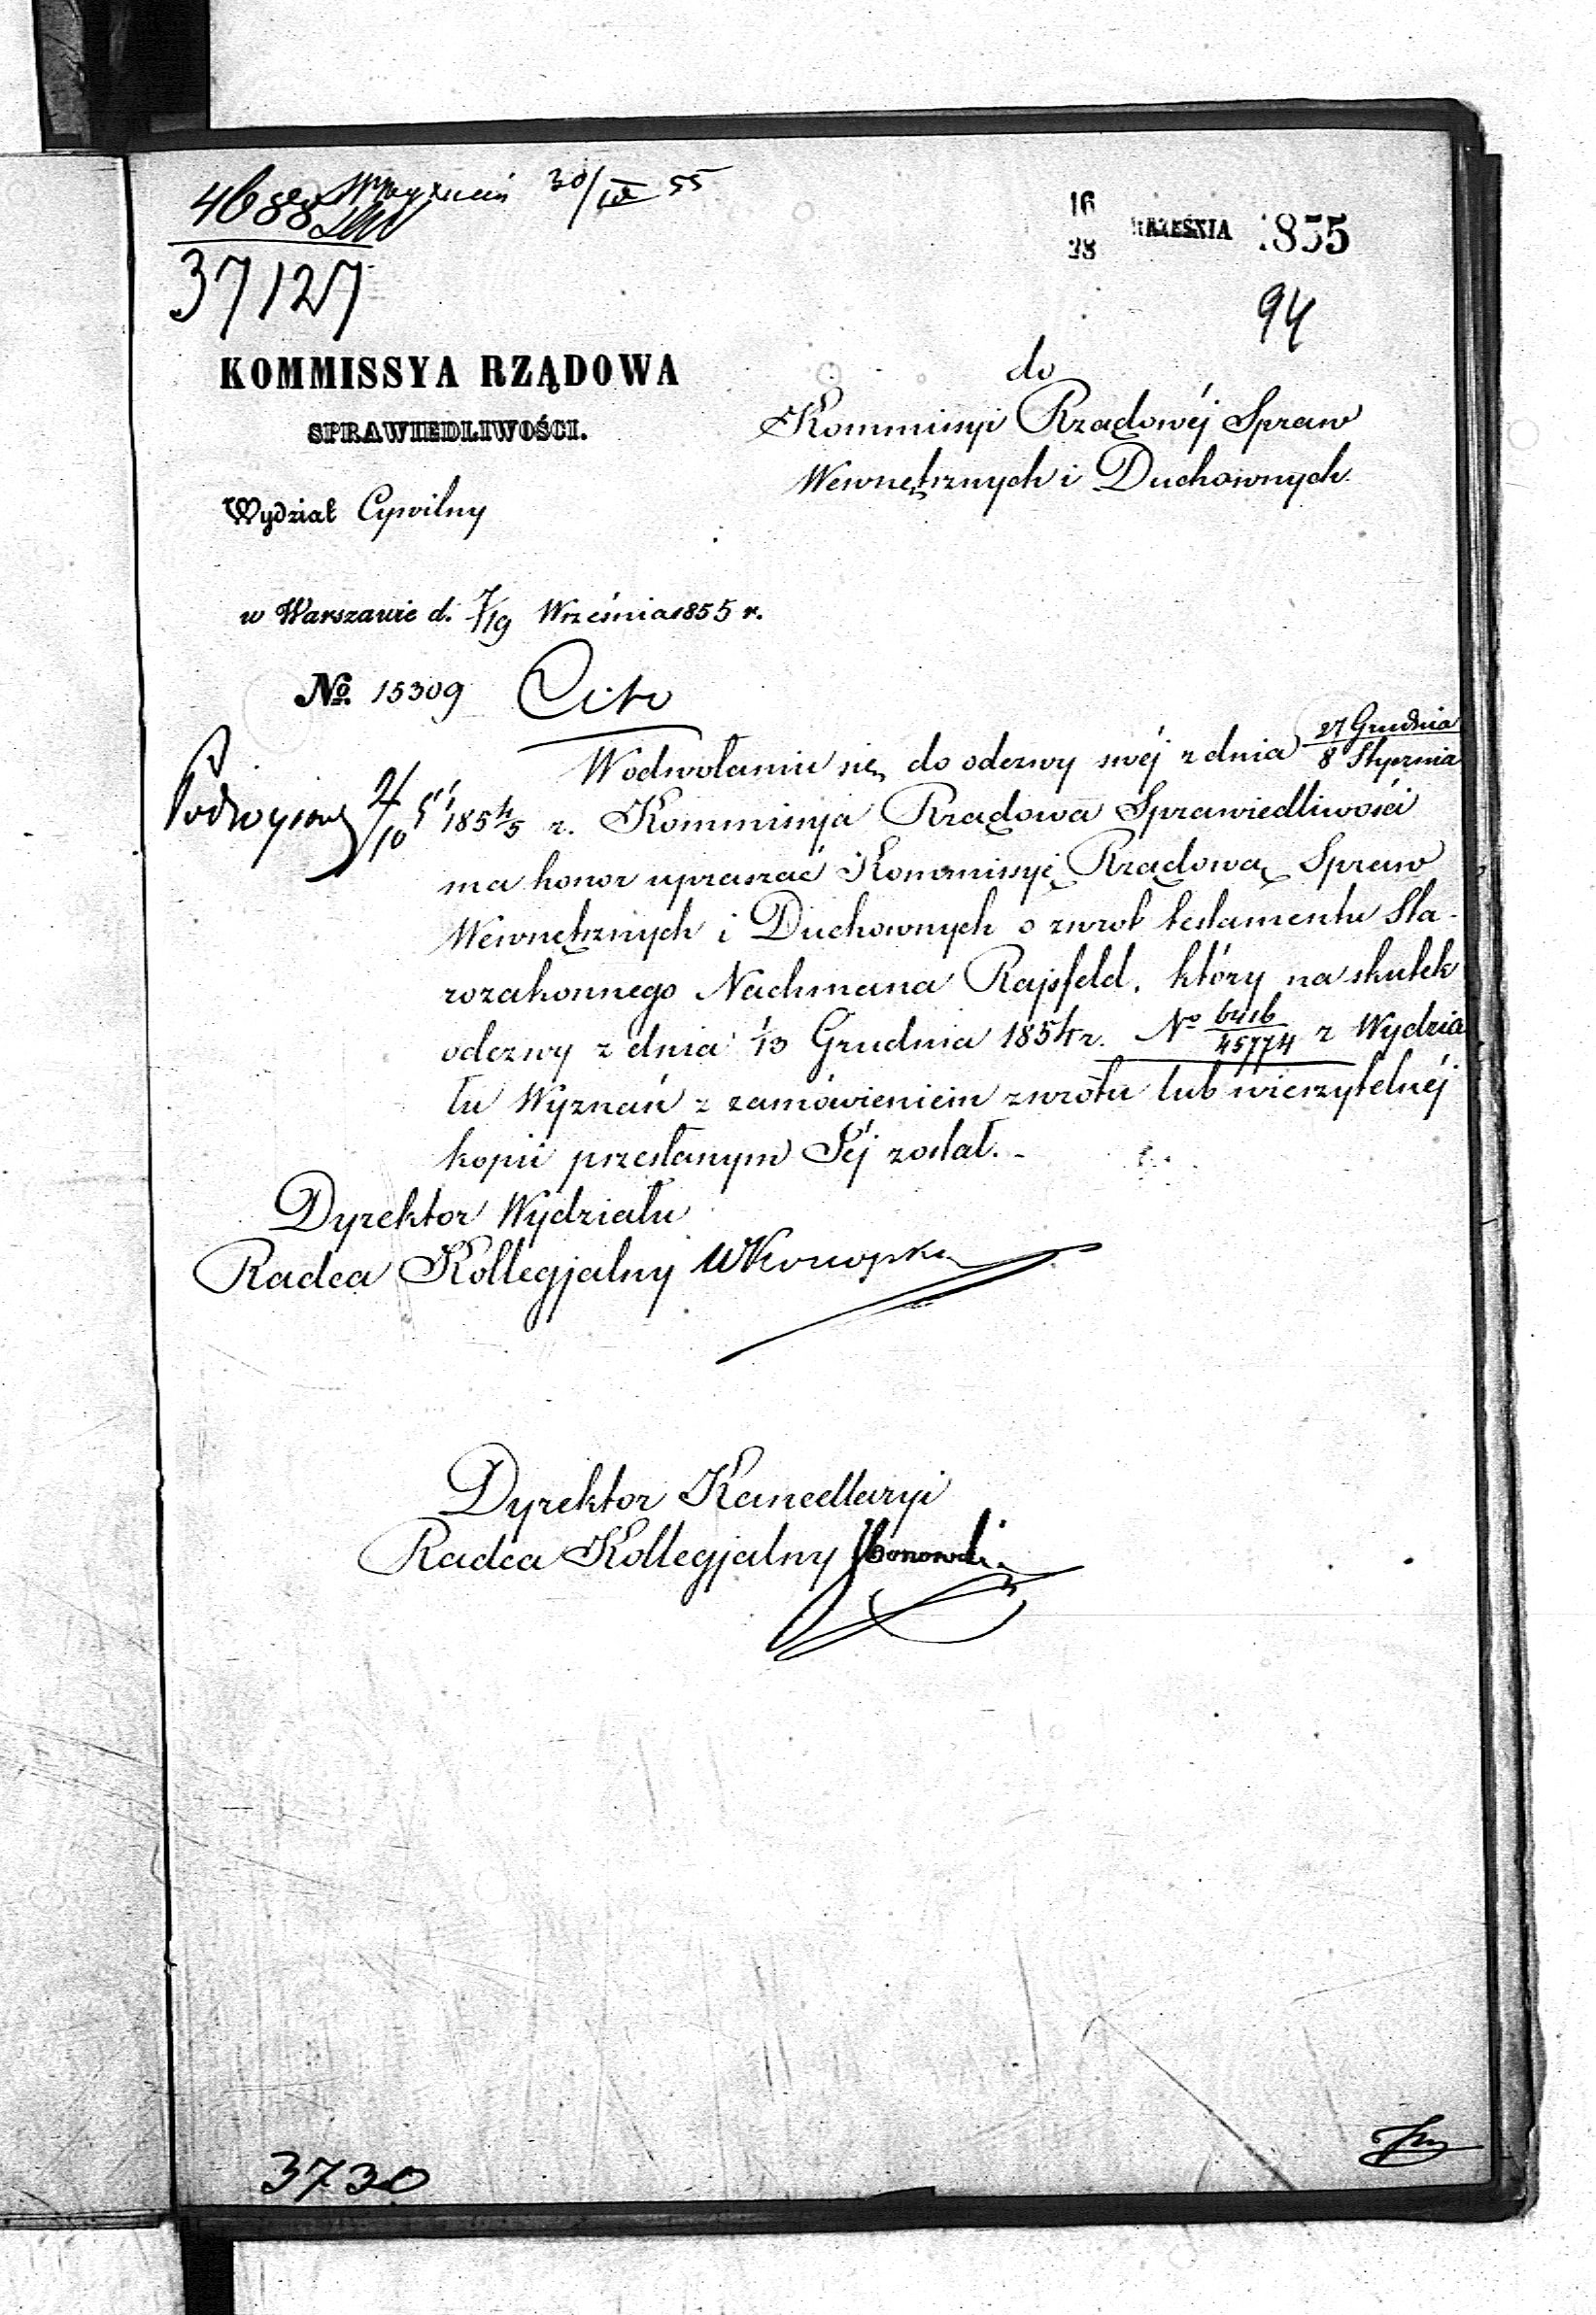 4688 30/IX 55
37127
16
28 WRZEŚNIA 1855
94
KOMMISSYA RZĄDOWA
SPRAWIEDLIWOŚCI.
Wydział Cywilny
do
Kommissyi Rządowéj Spraw
Wewnętrznych i Duchownych.
w Warszawie d. 7/19 Września 1855 r.
No. 15309 Cito
W odwołaniu się do odezwy swéj z dnia 27 Grudnia / 8 Stycznia
1854/5 r. Kommissyja Rządowa Sprawiedliwości
ma honor upraszać Kommissyję Rządową Spraw
Wewnętrznych i Duchownych o zwrot testamentu Sta-
rozakonnego Nachmana Rajsfeld, który na skutek
odezwy z dnia 1/13 Grudnia 1854 r. No 45774 z Wydzia
łu Wyznań z zamówieniem zwrotu lub wierzytelnéj
kopii przesłanym Jéj został.-
Dyrektor Wydziału
Radca Kollegjalny
Dyrektor Kancellaryi
Radca Kollegjalny
3730